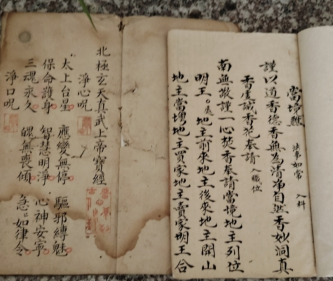 北極玄天真武上帝寶經
淨心呪
太上台星 應變無停 驅邪縛魅
保命護身 智慧明淨 心神安寧
三魂永久 魄無喪傾 急急如律令
淨口呪
法事如常 入科
謹以道香德香無為清淨自然香妙洞真
香虔誠香花奉請
南無敬謹一心焚香奉請當境地主列位
明王 地主前來地主後來地主開山
地主當增地主買家地主賣家明王合